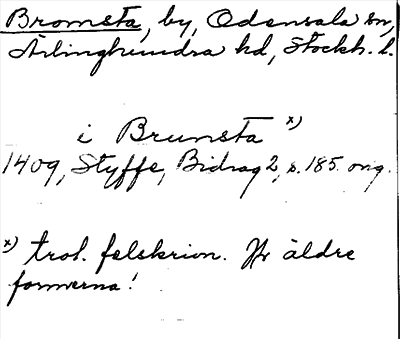 Bromsta, by, Odensala sn,
Ärlinghundra hd, Stockh. l.
i Brumsta x)
1409, Styffe, Bidrag 2, s. 185. orig.
x) trol. felskrivn. Jfr äldre
formerna!